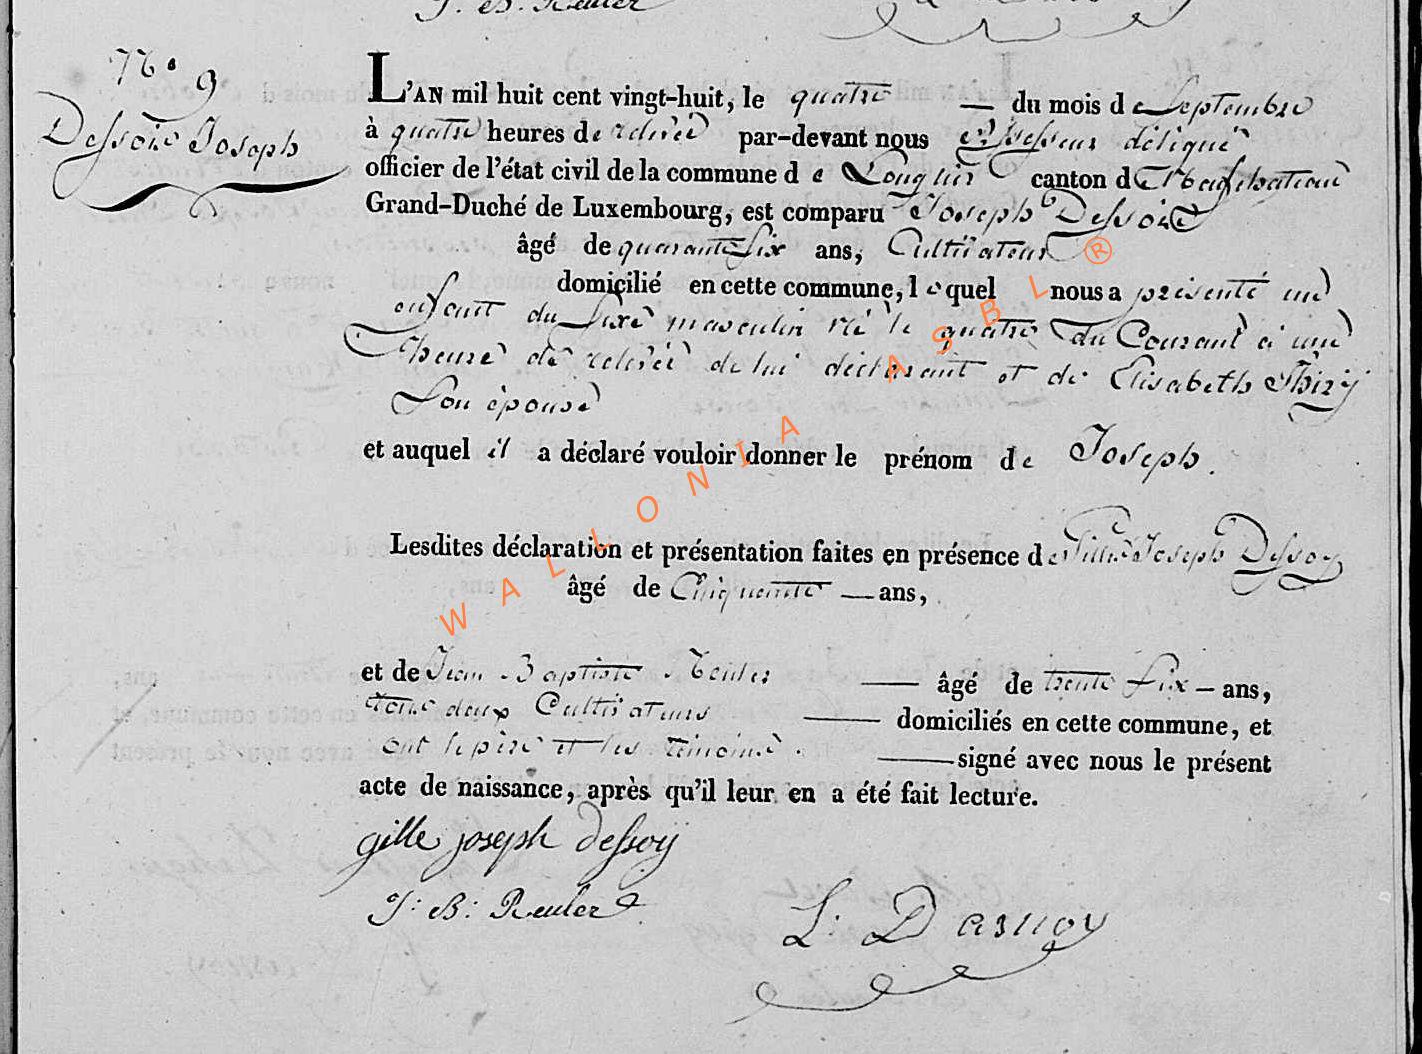 J. B. Reuler
N° 9
Dessoie Joseph
L'AN mil huit cent vingt-huit, le quatre — du mois de Septembre
à quatre heures de relevée par-devant nous assesseur délégué
officier de l'état civil de la commune de Longlier canton de Neufchateau
Grand-Duché de Luxembourg, est comparu Joseph Dessoie
âgé de quarante six ans, Cultivateur
domicilié en cette commune, lequel nous a présenté un
enfant du sixe masculin né le quatre du Courant à une
heure de relevée de lui déclarant et de Elisabeth Thiry
son épouse
et auquel il a déclaré vouloir donner le prénom de Joseph.
Lesdites déclaration et présentation faites en présence de Gille Joseph Dessoy
âgé de Cinquante — ans,
et de Jean Baptiste Reuler — âgé de trente six — ans,
tous deux Cultivateurs — domiciliés en cette commune, et
ont le père et les témoins — signé avec nous le présent
acte de naissance, après qu'il leur en a été fait lecture.
gille joseph dessoy
J: B: Reuler
L: Dasnoy
WALLONIA ASBL ®